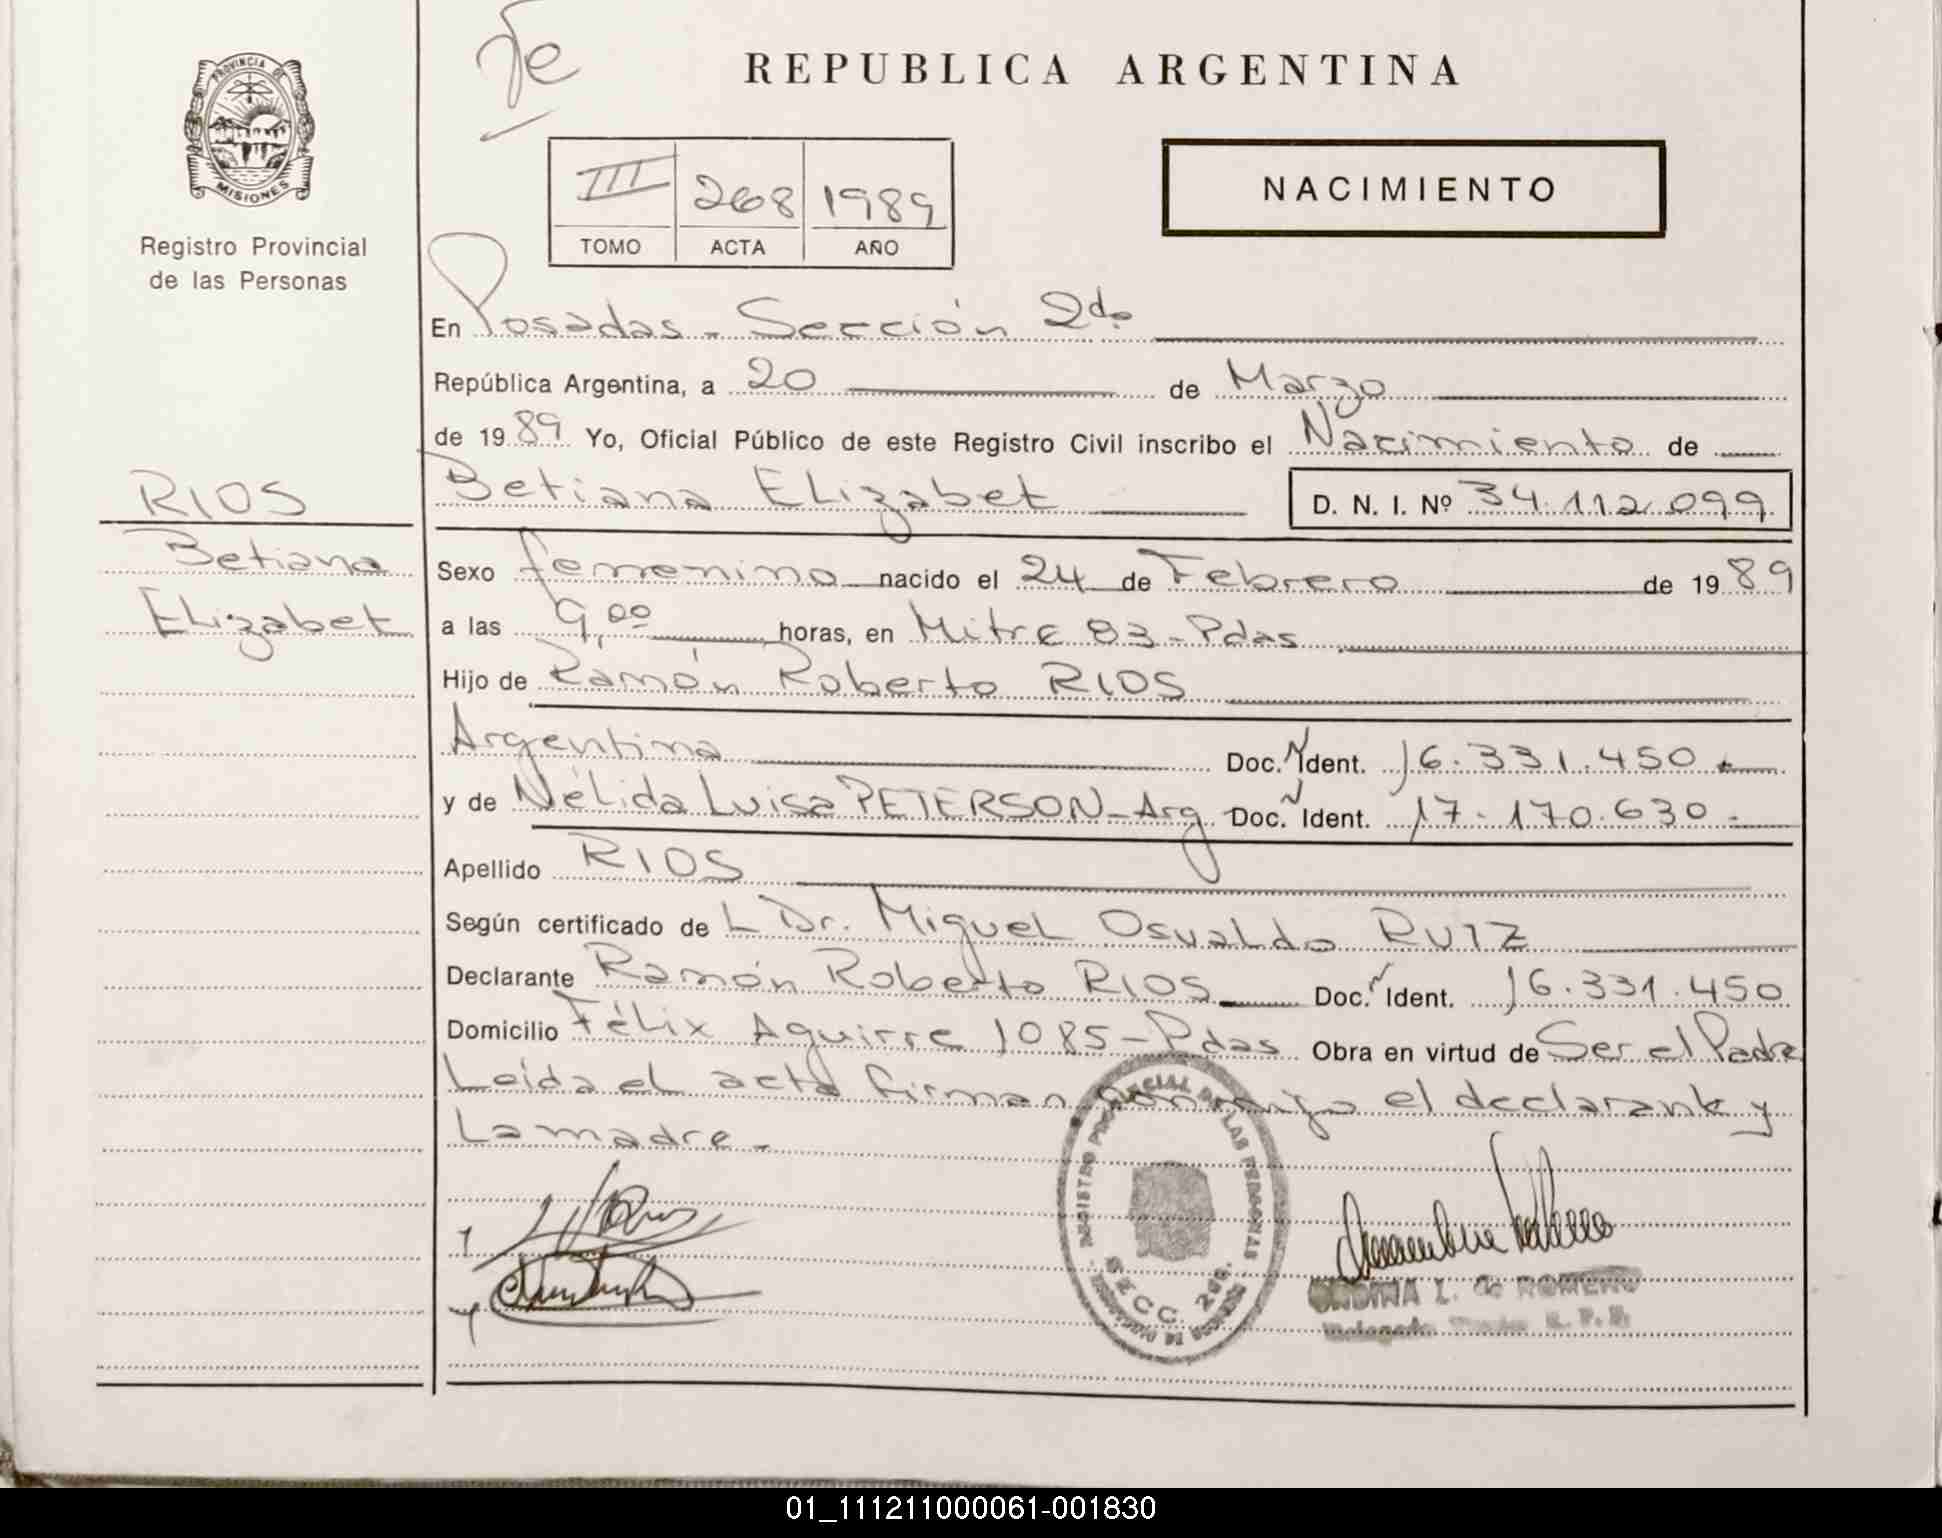 Te
REPUBLICA ARGENTINA
PROVINCIA DE
MISIONES
Registro Provincial
de las Personas
III 268 1989
TOMO ACTA AÑO
NACIMIENTO
En Posadas - Sección 2da
República Argentina, a 20 de Marzo
de 1989 Yo, Oficial Público de este Registro Civil inscribo el Nacimiento de
Betiana ELizabet D. N. I. Nº 34.112.099
RIOS
Betiana
ELizabet
Sexo femenino nacido el 24 de Febrero de 1989
a las 9,00 horas, en Mitre 83 - Pdas
Hijo de Ramón Roberto RIOS
Argentina Doc. N Ident. 16.331.450
y de NéLida Luisa PETERSON - Arg Doc. N Ident. 17.170.630.-
Apellido RIOS
Según certificado de L Dr. MigueL OsvaLdo RUIZ
Declarante Ramón Roberto RIOS Doc. N Ident. 16.331.450
Domicilio FéLix Aguirre 1085 - Pdas Obra en virtud de Ser el Padre
Leída eL acta firman conmigo el declarante y
La madre.-
REGISTRO PROVINCIAL DE LAS PERSONAS
SECC. 2da.
ONDINA L. de ROMERO